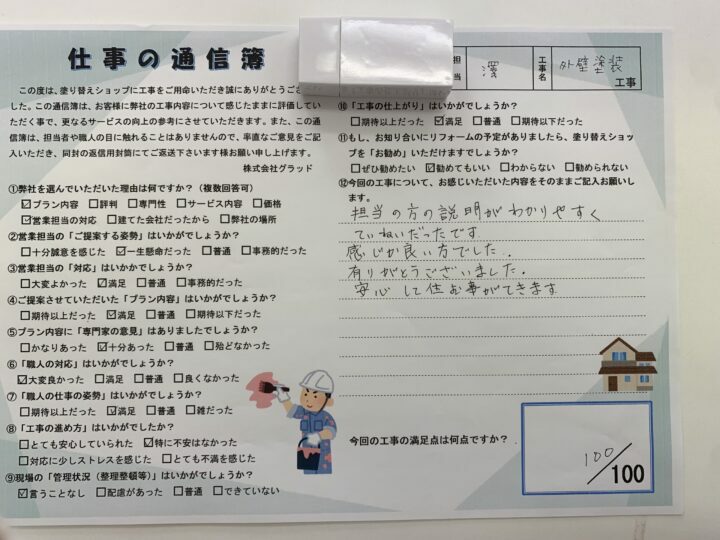 仕事の通信簿
この度は、塗り替えショップに工事をご用命いただき誠にありがとうござ
した。この通信簿は、お客様に弊社の工事内容について感じたままに評価してい
ただく事で、更なるサービスの向上の参考にさせていただきます。また、この通
信簿は、担当者や職人の目に触れることはありませんので、率直なご意見をご記
入いただき、同封の返信用封筒にてご返送下さいます様お願い申し上げます。
株式会社グラッド
①弊社を選んでいただいた理由は何ですか？（複数回答可）
☑プラン内容 □評判 □専門性 □サービス内容 □価格
☑営業担当の対応 □建てた会社だったから □弊社の場所
②営業担当の「ご提案する姿勢」はいかがでしょうか？
□十分誠意を感じた ☑一生懸命だった □普通 □事務的だった
③営業担当の「対応」はいかかでしょうか？
□大変よかった ☑満足 □普通 □事務的だった
④ご提案させていただいた「プラン内容」はいかがでしょうか？
□期待以上だった ☑満足 □普通 □期待以下だった
⑤プラン内容に「専門家の意見」はありましたでしょうか？
□かなりあった ☑十分あった □普通 □殆どなかった
⑥「職人の対応」はいかがでしょうか？
☑大変良かった □満足 □普通 □良くなかった
⑦「職人の仕事の姿勢」はいかがでしょうか？
□期待以上だった ☑満足 □普通 □雑だった
⑧「工事の進め方」はいかがでしたか？
□とても安心していられた ☑特に不安はなかった
□対応に少しストレスを感じた □とても不満を感じた
⑨現場の「管理状況（整理整頓等）」はいかがでしょうか？
☑言うことなし □配慮があった □普通 □できていない
当 澤 工事名 外壁塗装 工事
⑩「工事の仕上がり」はいかがでしょうか？
□期待以上だった ☑満足 □普通 □期待以下だった
⑪もし、お知り合いにリフォームの予定がありましたら、塗り替えショッ
プを「お勧め」いただけますでしょうか？
□ぜひ勧めたい ☑勧めてもいい □わからない □勧められない
⑫今回の工事について、お感じいただいた内容をそのままご記入お願いし
ます。
担当の方の説明がわかりやすく
ていねいだったです
感じが良い方でした.
有りがとうございました.
安心して住む事ができます
今回の工事の満足点は何点ですか？
100/100